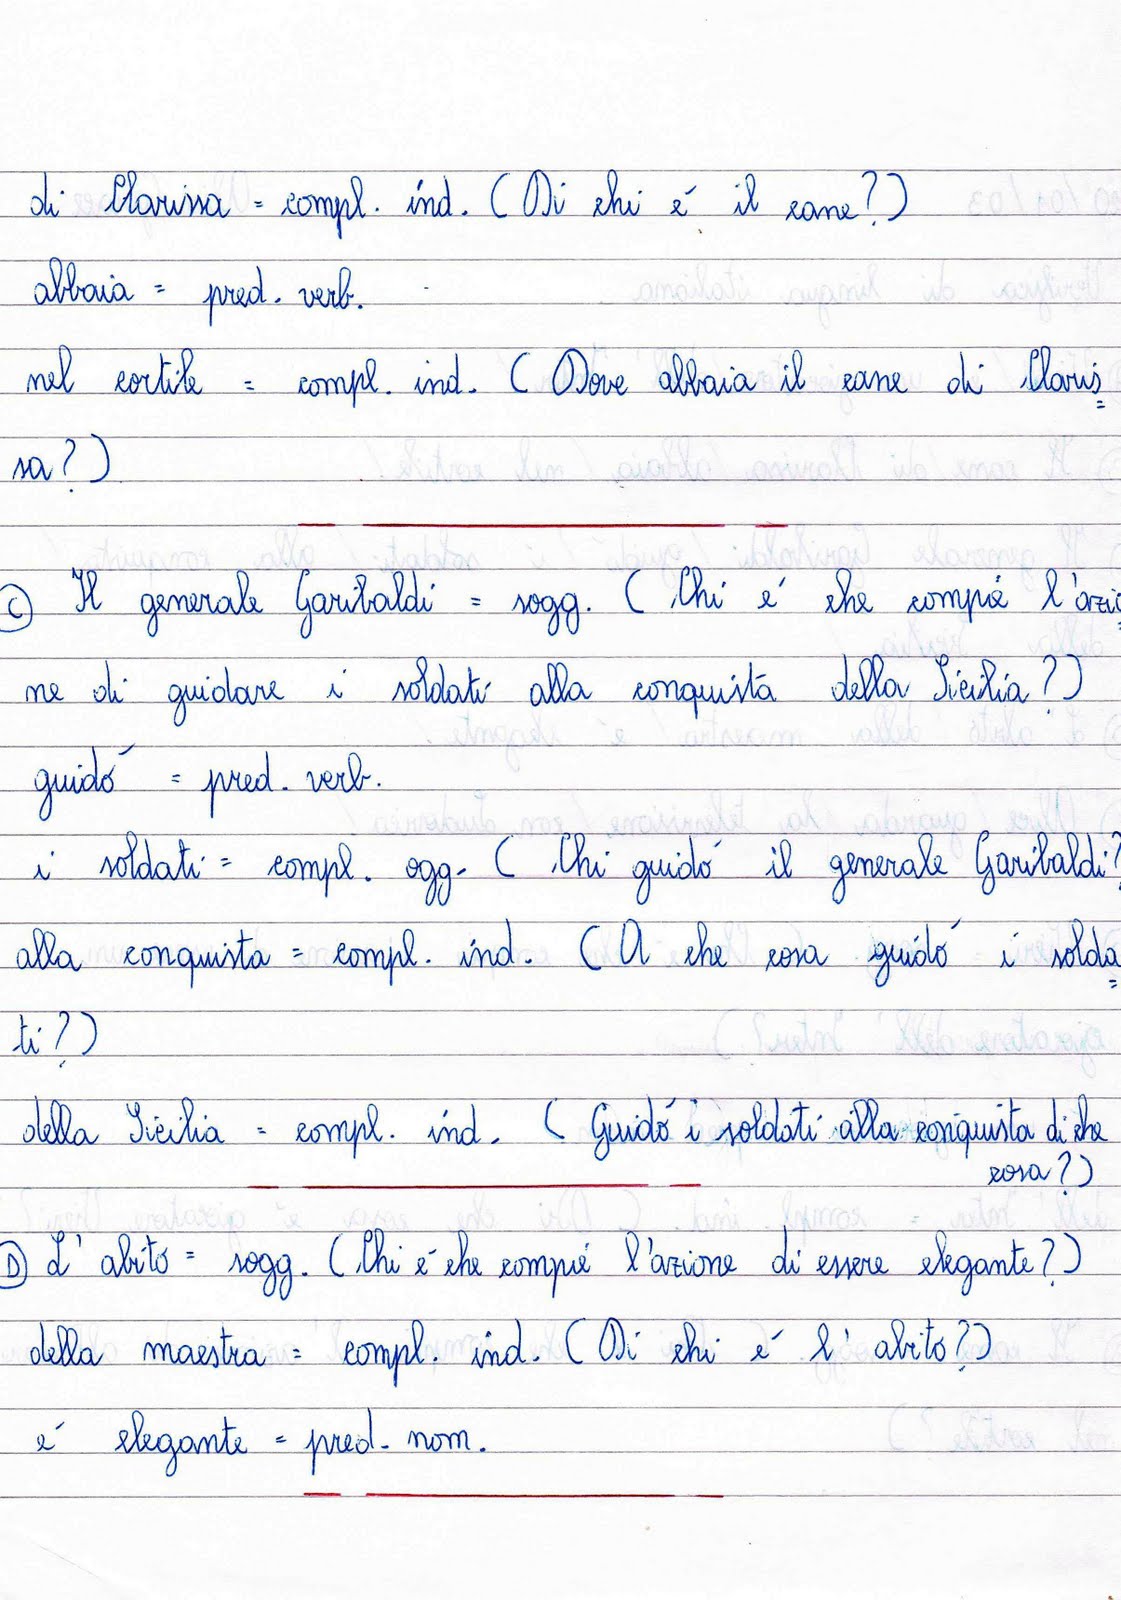 di Clarissa = compl. ind. (Di chi é il cane?)
abbaia = pred. verb.
nel cortile = compl. ind. (Dove abbaia il cane di Claris=
sa?)
C) Il generale Garibaldi = sogg. (Chi é che compié l'azio
ne di guidare i soldati alla conquista della Sicilia?)
guidó = pred. verb.
i soldati = compl. ogg. (Chi guidó il generale Garibaldi?
alla conquista = compl. ind. (A che cosa guidó i solda=
ti?)
della Sicilia = compl. ind. (Guidó i soldati alla conquista di che
cosa?)
D) L'abito = sogg. (Chi é che compié l'azione di essere elegante?)
della maestra = compl. ind. (Di chi é l'abito?)
é elegante = pred. nom.